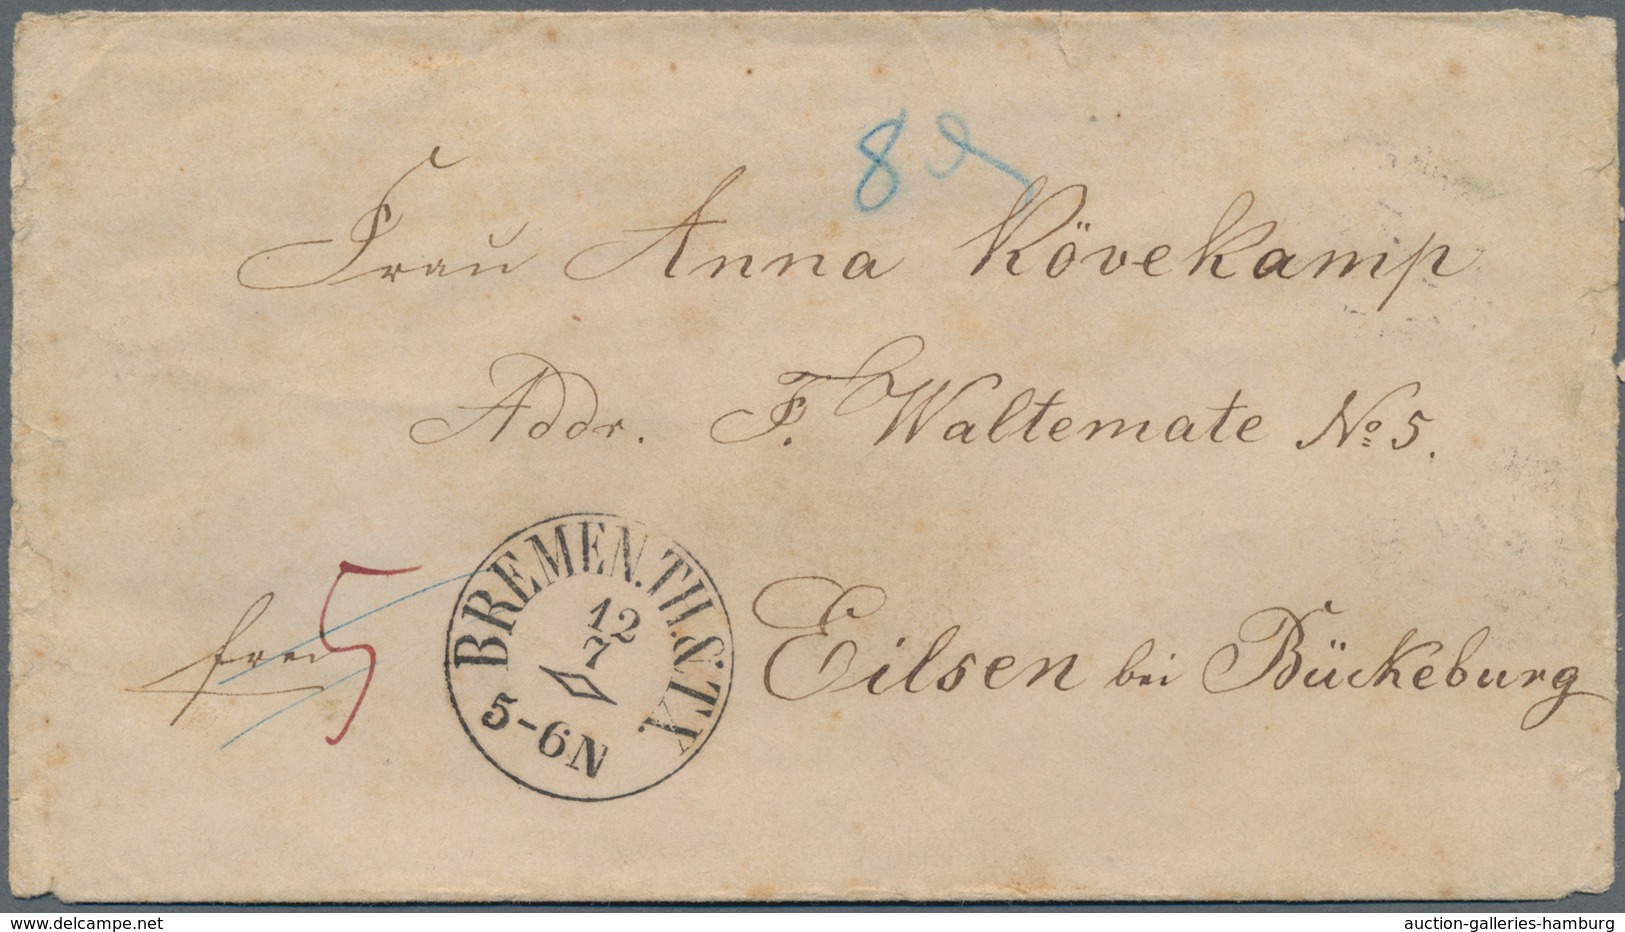 8
Frau Anna Kövekamp
Addr. F. Waltemate No 5.
frei 5
BREMEN. TH. & TX
12
7
5-6N
Eilsen bei Bückeburg
www.delcampe.net
auction-galleries-hamburg